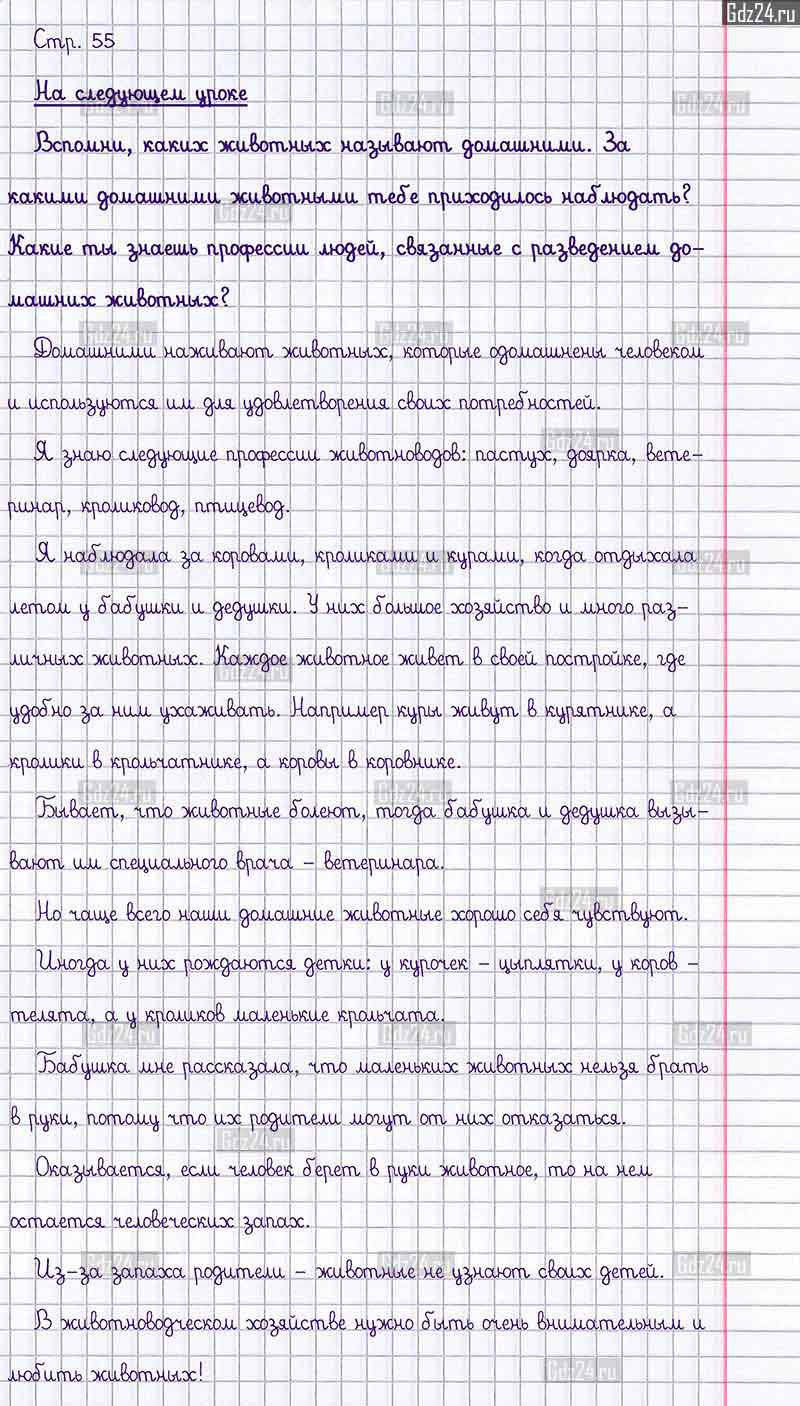 Gdz24.ru
Стр. 55
На следующем уроке
Вспомни, каких животных называют домашними. За
какими домашними животными тебе приходилось наблюдать?
Какие ты знаешь профессии людей, связанные с разведением до-
машних животных?
Домашними наживают животных, которые одомашнены человеком
и используются им для удовлетворения своих потребностей.
Я знаю следующие профессии животноводов: пастух, доярка, вете-
ринар, кроликовод, птицевод.
Я наблюдала за коровами, кроликами и курами, когда отдыхала
летом у бабушки и дедушки. У них большое хозяйство и много раз-
личных животных. Каждое животное живет в своей постройке, где
удобно за ним ухаживать. Например куры живут в курятнике, а
кролики в крольчатнике, а коровы в коровнике.
Бывает, что животные болеют, тогда бабушка и дедушка вызы-
вают им специального врача - ветеринара.
Но чаще всего наши домашние животные хорошо себя чувствуют.
Иногда у них рождаются детки: у курочек - цыплятки, у коров -
телята, а у кроликов маленькие крольчата.
Бабушка мне рассказала, что маленьких животных нельзя брать
в руки, потому что их родители могут от них отказаться.
Оказывается, если человек берет в руки животное, то на нем
остается человеческих запах.
Из-за запаха родители - животные не узнают своих детей.
В животноводческом хозяйстве нужно быть очень внимательным и
любить животных!